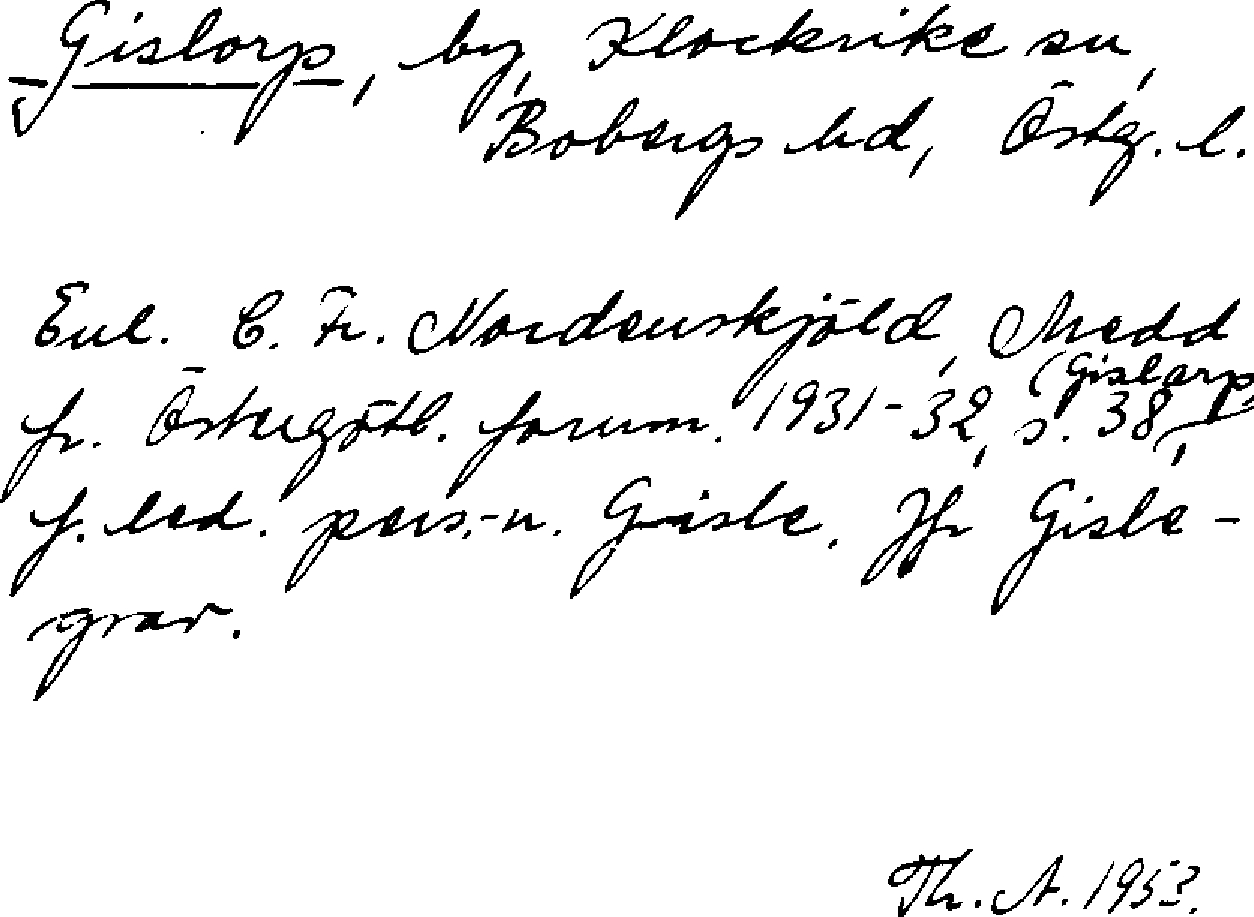 Gislorp, by, Klockrike sn,
Bobergs hd, Östg. l.
Enl. C. Fr. Nordenskjöld, Medd
fr. Östergötl. fornm. 1931-32, s. 38, (Gislarp),
f. led. pers.-n. Gisle. Jfr Gisle-
grav.
Th. A. 1953.